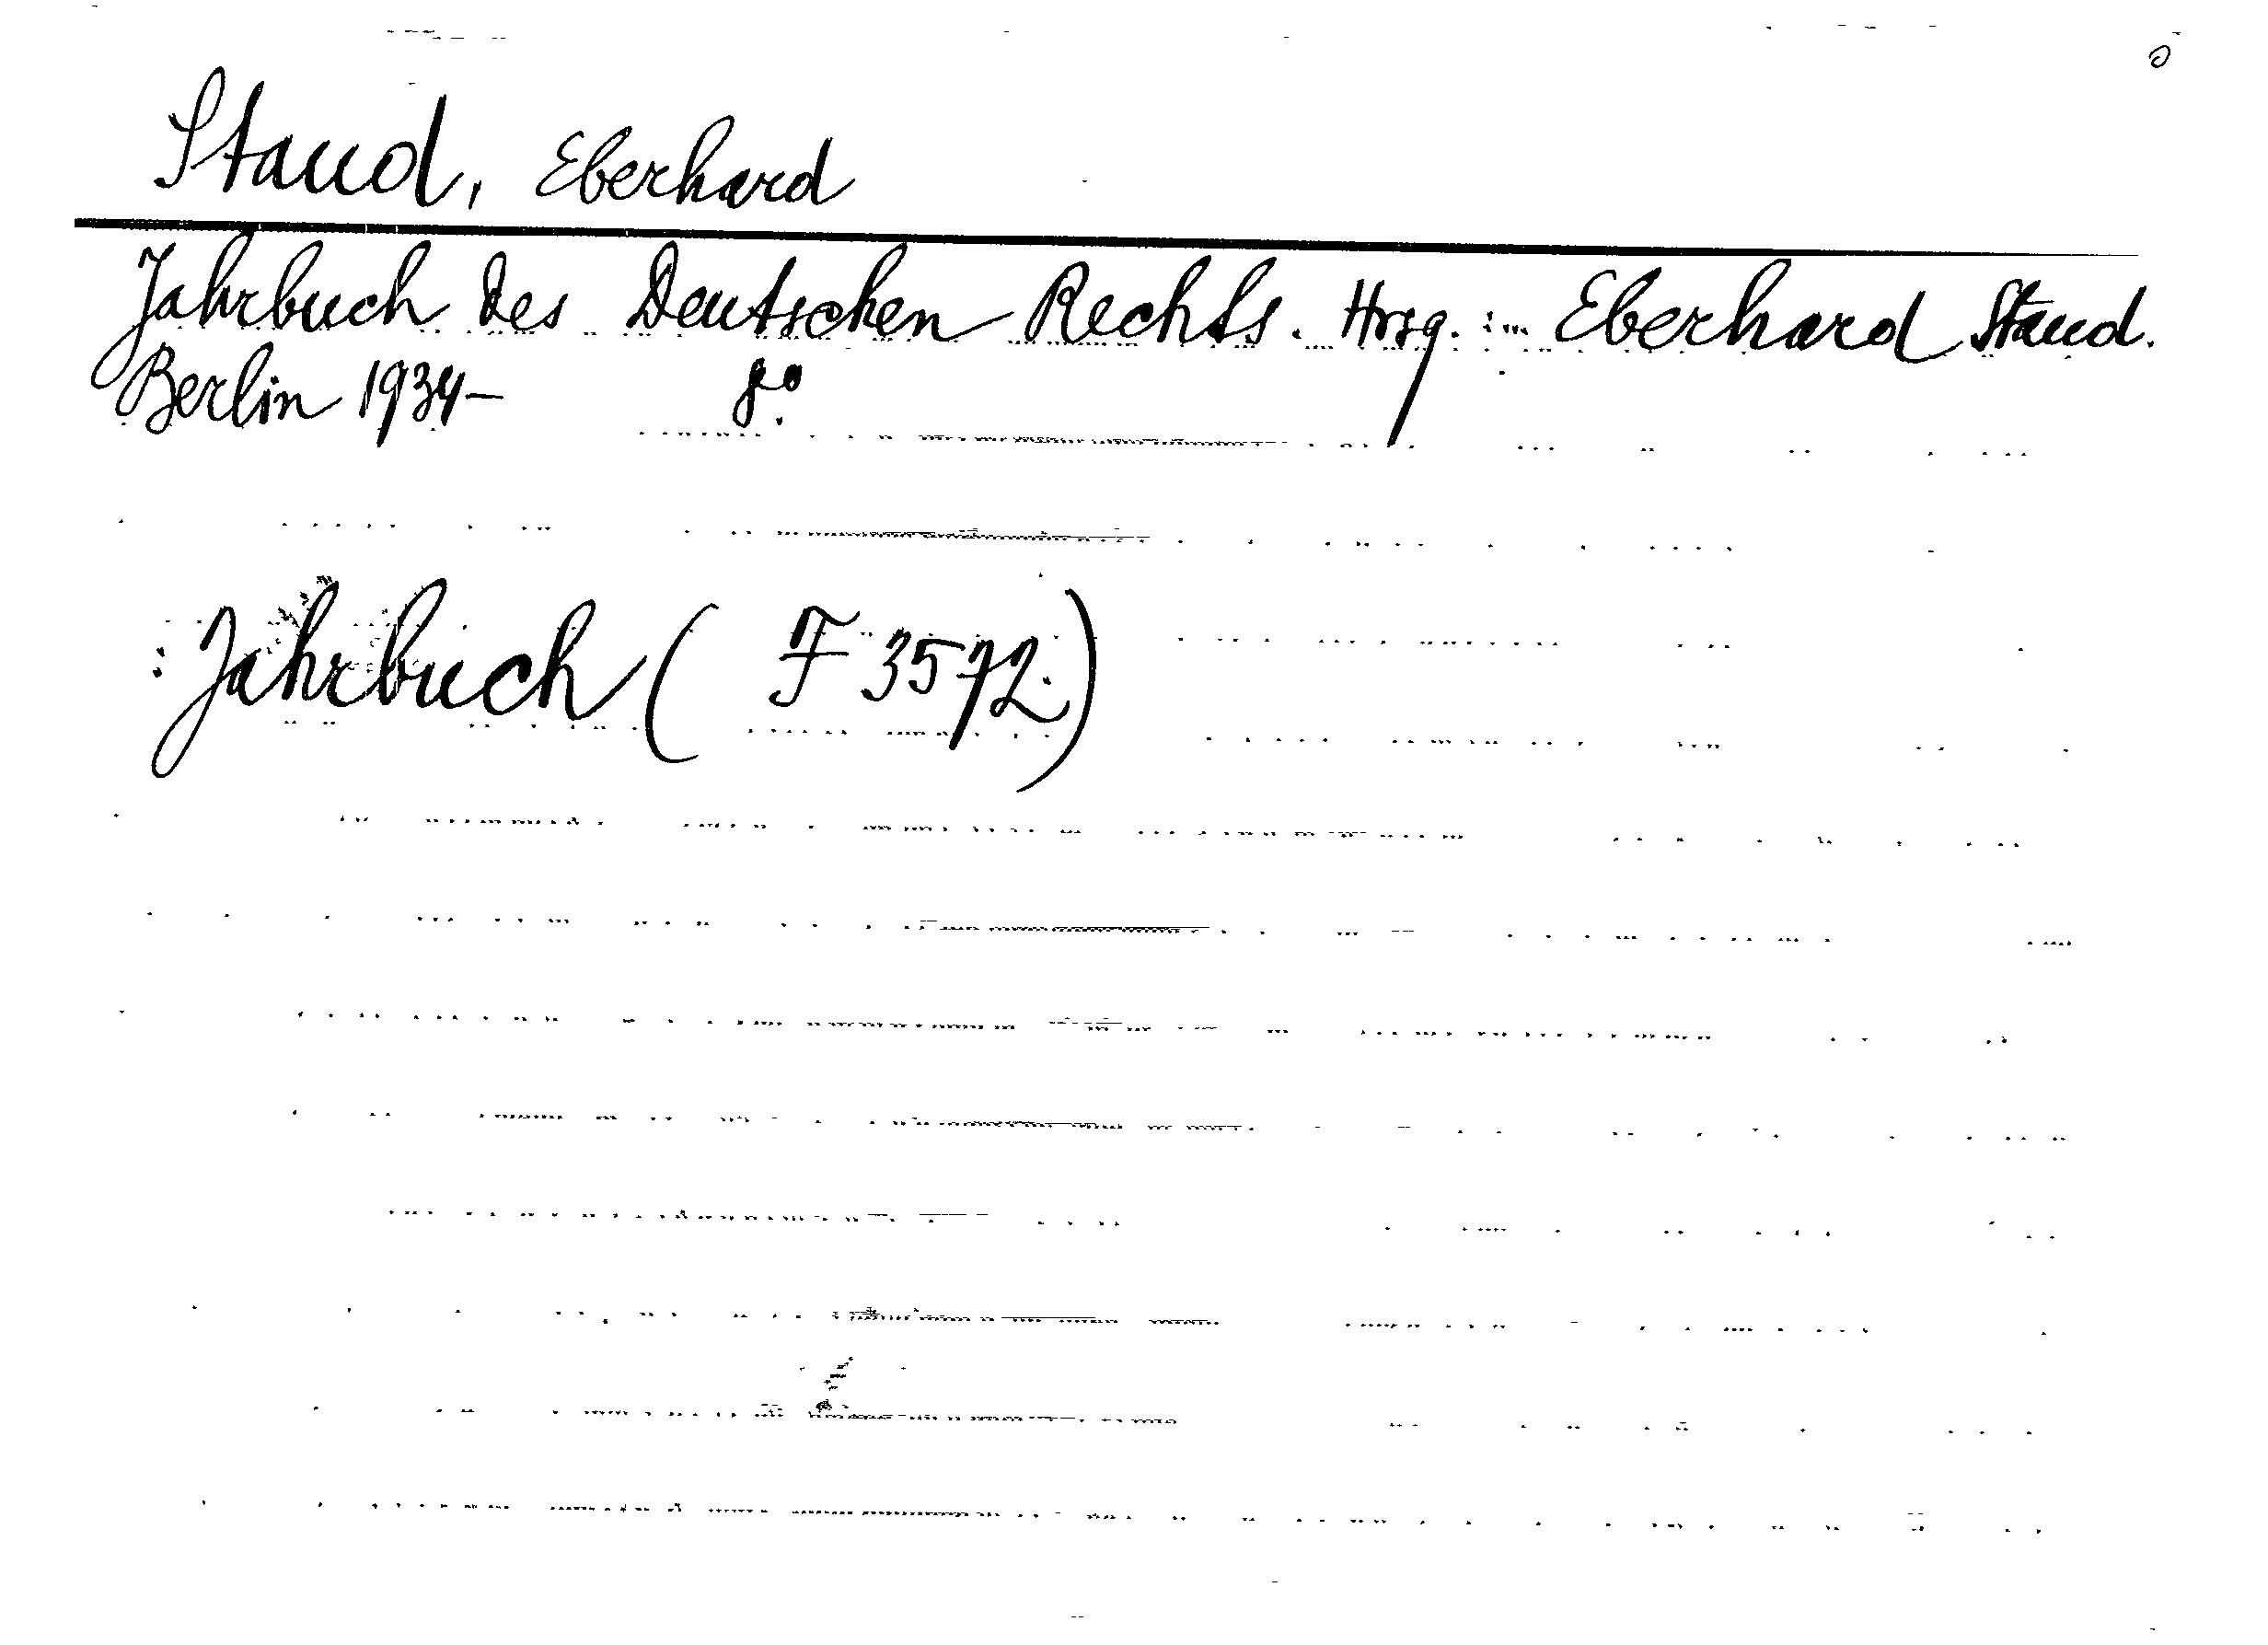 Staud, Eberhard
Jahrbuch des Deutschen Rechts. Hrsg.: ... Eberhard Staud.
Berlin 1934- 8°.
: Jahrbuch ( F 3572.)